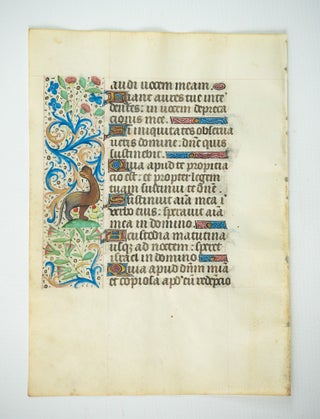 audi vocem meam
Fiant aures tue inte
dentes: in vocem depreca
cionis mee.
Si iniquitates observa
veris domine: dn̄e quis
sustinebit.
Quia apud te propicia
cio est: et propter legem
tuam sustinui te dn̄e.
Sustinuit aīa mea ī
verbo eius: speravit aīa
mea in domino.
A custodia matutina
usqz ad noctem: speret
israel in domino.
Quia apud dūm mīa
et copiosa apd eū redēpcio